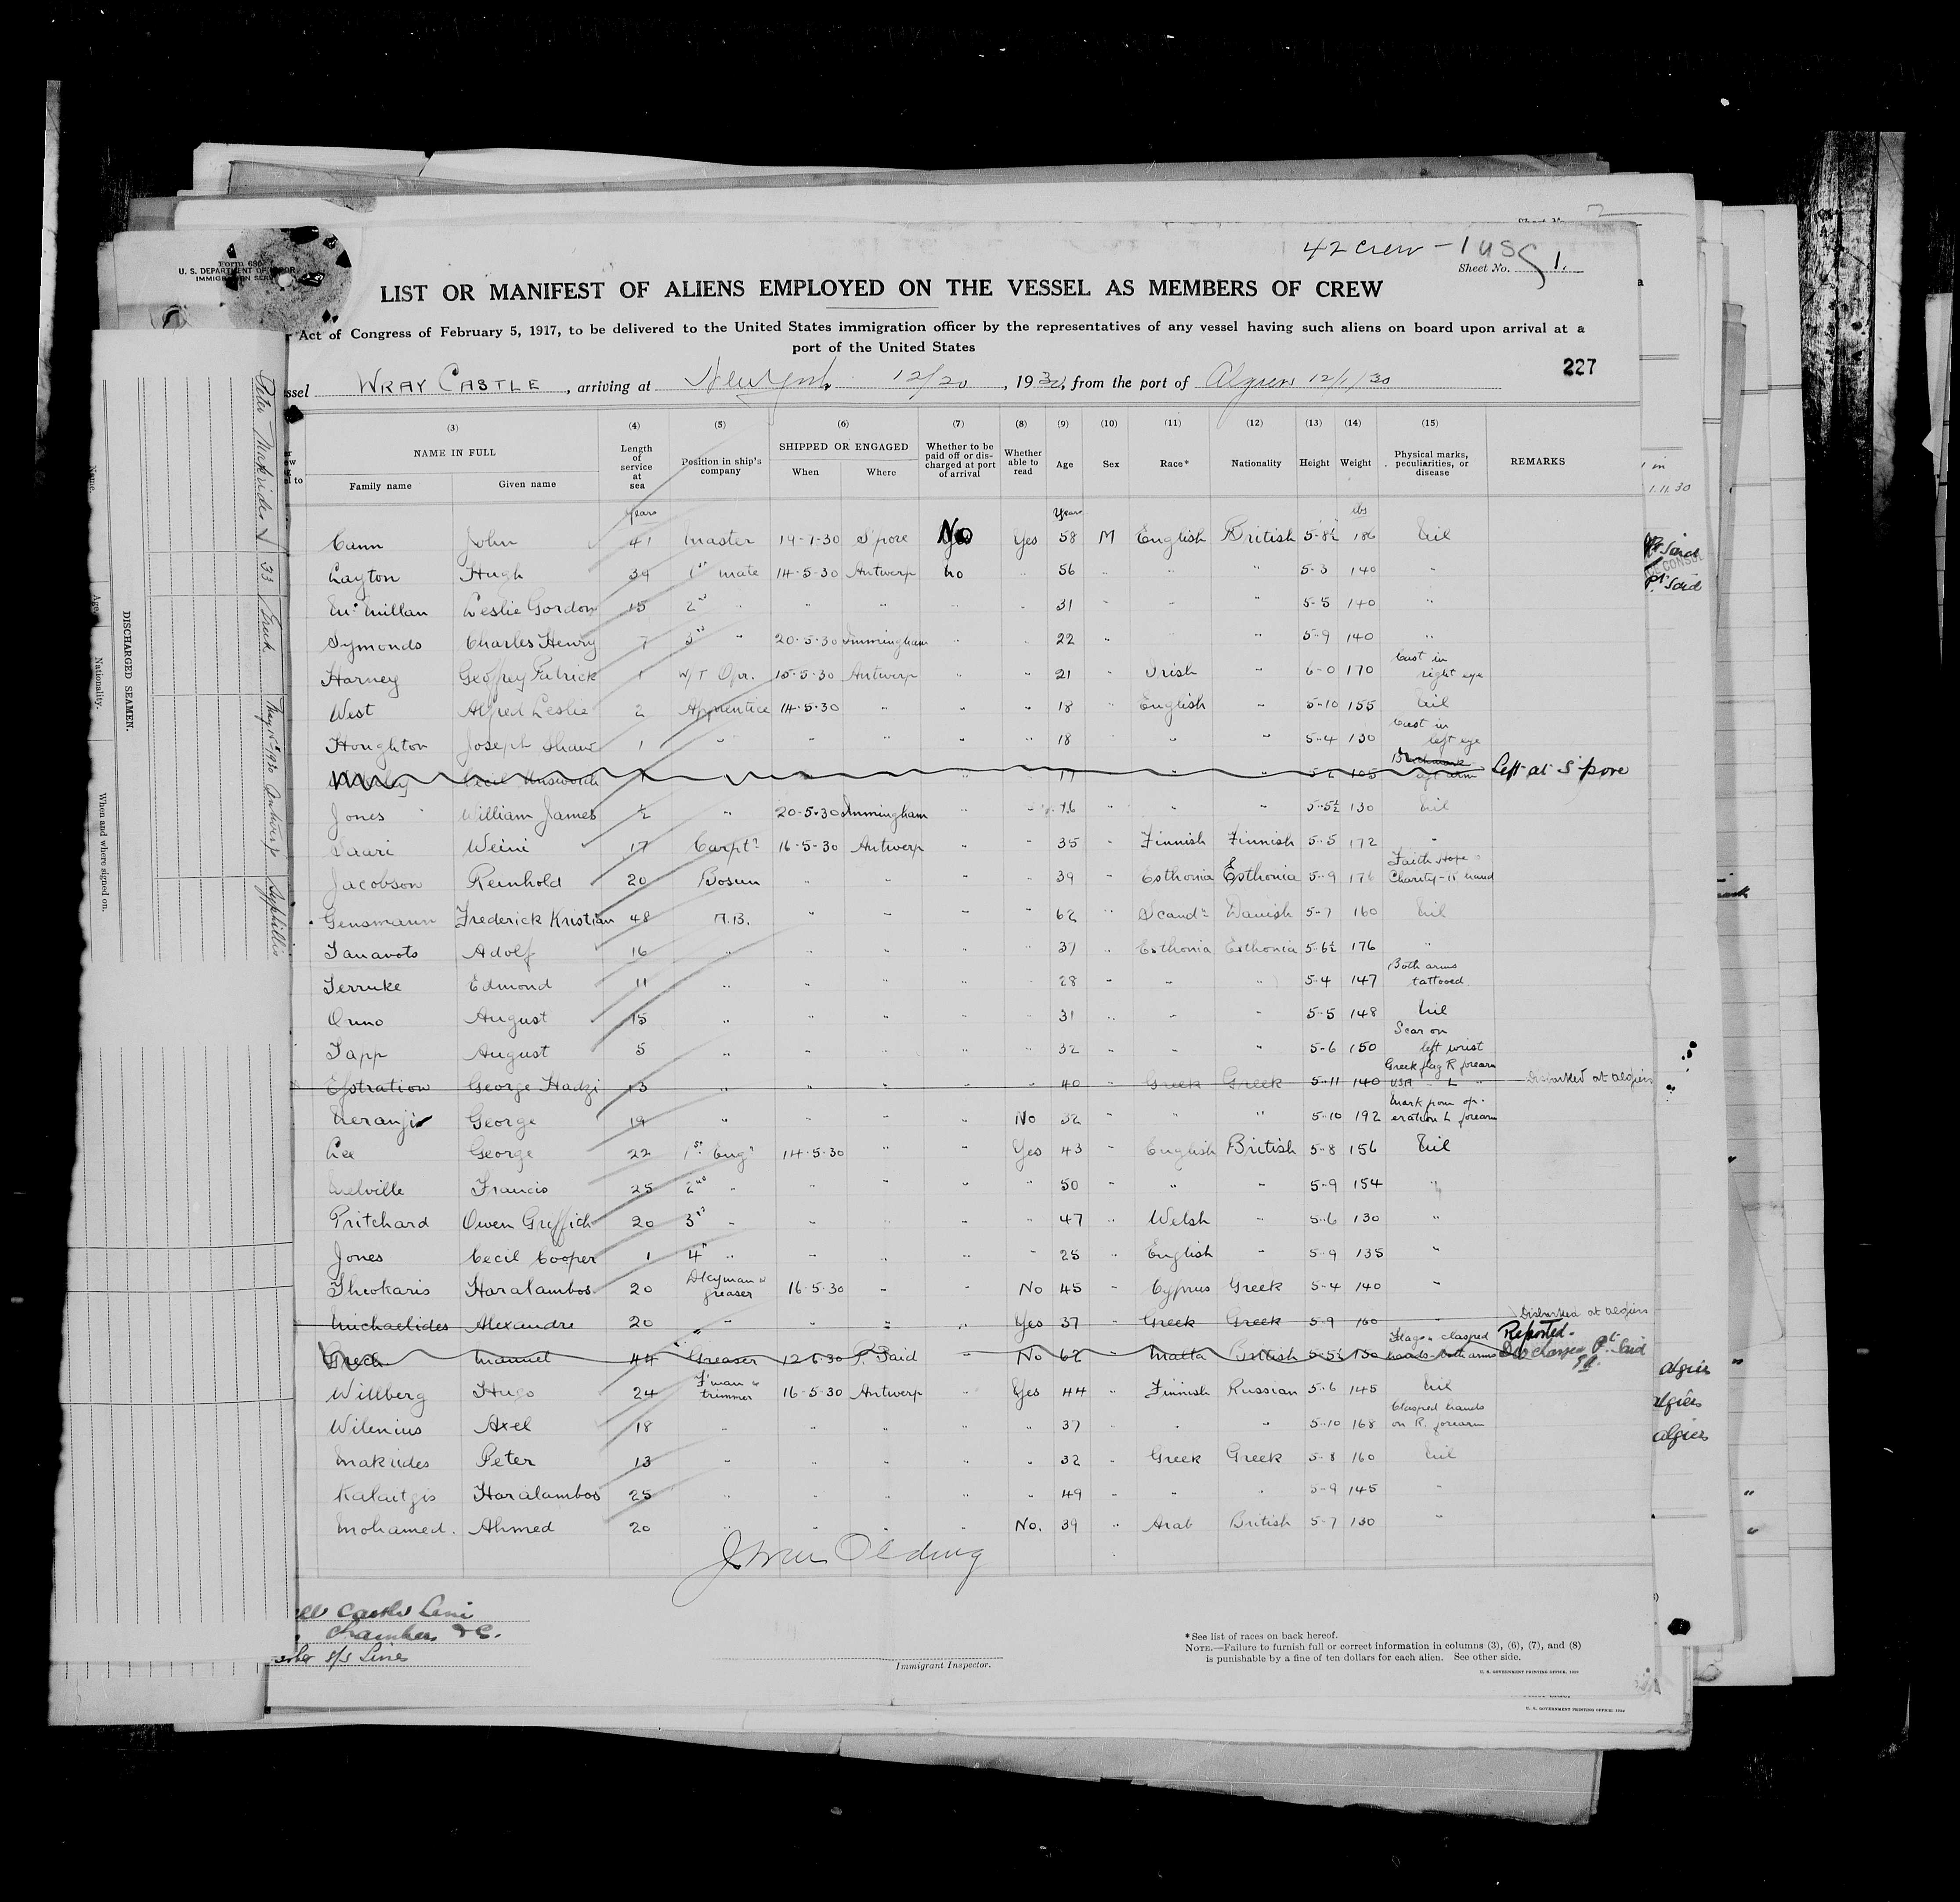 42 crew - 1 USC
Sheet No. 1.
Form 680
U. S. DEPARTMENT OF LABOR
IMMIGRATION SERVICE
LIST OR MANIFEST OF ALIENS EMPLOYED ON THE VESSEL AS MEMBERS OF CREW
Act of Congress of February 5, 1917, to be delivered to the United States immigration officer by the representatives of any vessel having such aliens on board upon arrival at a
port of the United States
227
ssel WRAY CASTLE, arriving at New York 12/20, 1930, from the port of Algiers 12/1/30
(3) (4) (5) (6) (7) (8) (9) (10) (11) (12) (13) (14) (15)
NAME IN FULL Length of service at sea Position in ship's company SHIPPED OR ENGAGED Whether to be paid off or discharged at port of arrival Whether able to read Age Sex Race* Nationality Height Weight Physical marks, peculiarities, or disease REMARKS
Family name Given name When Where
years Years lbs
Cann John 41 Master 19-7-30 S'pore No Yes 58 M English British 5-8½ 186 Nil
Layton Hugh 39 1st mate 14-5-30 Antwerp No " 56 " " " 5-3 140 "
McMillan Leslie Gordon 15 2nd " " " " " 31 " " " 5-5 140 "
Symonds Charles Henry 7 3rd " 20-5-30 Immingham " " 22 " " " 5-9 140 "
Harney Geoffrey Patrick 1 W/T Opr. 15-5-30 Antwerp " " 21 " Irish " 6-0 170 Cast in right eye
West Alfred Leslie 2 Apprentice 14-5-30 " " " 18 " English " 5-10 155 Nil
Houghton Joseph Shaw 1 " " " " " 18 " " " 5-4 130 Cast in left eye
Cecil Left at S'pore
Jones William James ½ " 20-5-30 Immingham " " 16 " " " 5-5½ 130 Nil
Saari Weini 17 Carptr 16-5-30 Antwerp " " 35 " Finnish Finnish 5-5 172 "
Jacobson Reinhold 20 Bosun " " " " 39 " Esthonia Esthonia 5-9 176 Faith Hope Charity - R hand
Gensmann Frederick Kristian 48 A.B. " " " " 62 " Scandn Danish 5-7 160 Nil
Tanavots Adolf 16 " " " " " 37 " Esthonia Esthonia 5-6½ 176 "
Terruke Edmond 11 " " " " " 28 " " " 5-4 147 Both arms tattooed
Onno August 15 " " " " " 31 " " " 5-5 148 Nil
Tapp August 5 " " " " " 32 " " " 5-6 150 Scar on left wrist
Efstration George Hadzi 13 " " " " " 40 " Greek Greek 5-11 140 Greek flag R forearm USA " L " Disbarked at Algiers
Neranji George 19 " " " " No 32 " " " 5-10 192 Mark from operation L forearm
Lee George 22 1st Engr 14-5-30 " " Yes 43 " English British 5-8 156 Nil
Melville Francis 25 2nd " " " " " 50 " " " 5-9 154 "
Pritchard Owen Griffich 20 3rd " " " " " 47 " Welsh " 5-6 130 "
Jones Cecil Cooper 1 4th " " " " " 25 " English " 5-9 135 "
Theokaris Haralambos 20 Dkyman & greaser 16-5-30 " " No 45 " Cyprus Greek 5-4 140 "
Michaelides Alexandre 20 " " " " Yes 37 " Greek Greek 5-9 160 " Disbarked at Algiers
Grech Manuel 44 Greaser 12-6-30 P. Said " No 62 " Malta British 5-5½ 130 Flag & clasped hands both arms Reported. Discharged Pt. Said
Willberg Hugo 24 F'man & trimmer 16-5-30 Antwerp " Yes 44 " Finnish Russian 5-6 145 Nil
Wilenius Axel 18 " " " " " 37 " " " 5-10 168 Clasped hands on R. forearm
Makrides Peter 13 " " " " " 32 " Greek Greek 5-8 160 Nil
Kalaitgis Haralambos 25 " " " " " 49 " " " 5-9 145 "
Mohamed. Ahmed 20 " " " " No. 39 " Arab British 5-7 130 "
Castle Line
Chamber & C.
S/S Lines
Immigrant Inspector.
*See list of races on back hereof.
NOTE.—Failure to furnish full or correct information in columns (3), (6), (7), and (8)
is punishable by a fine of ten dollars for each alien. See other side.
U. S. GOVERNMENT PRINTING OFFICE
Peter Makrides 33 Greek May 16th 1930 Antwerp Syphillis
DISCHARGED SEAMEN.
Name. Age. Nationality. When and where signed on.
1.11.30
Pt. Said
Pt. Said
Algiers
Algiers
Algiers
U. S. GOVERNMENT PRINTING OFFICE